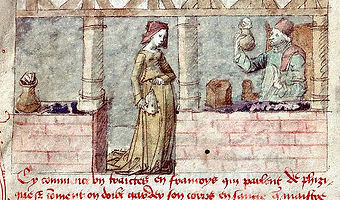 Cy commence ung traictie en francoys qui parle de phizi
que et coment on doibt garder son corps en sancte q̃ maistre